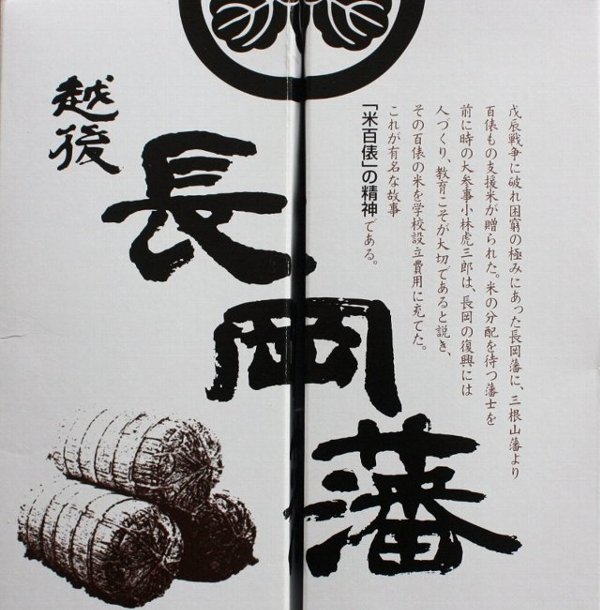 戊辰戦争に破れ困窮の極みにあった長岡藩に、三根山藩より
百俵もの支援米が贈られた。米の分配を待つ藩士を
前に時の大参事小林虎三郎は、長岡の復興には
人づくり、教育こそが大切であると説き、
その百俵の米を学校設立費用に充てた。
これが有名な故事
「米百俵」の精神である。
越後
長岡藩